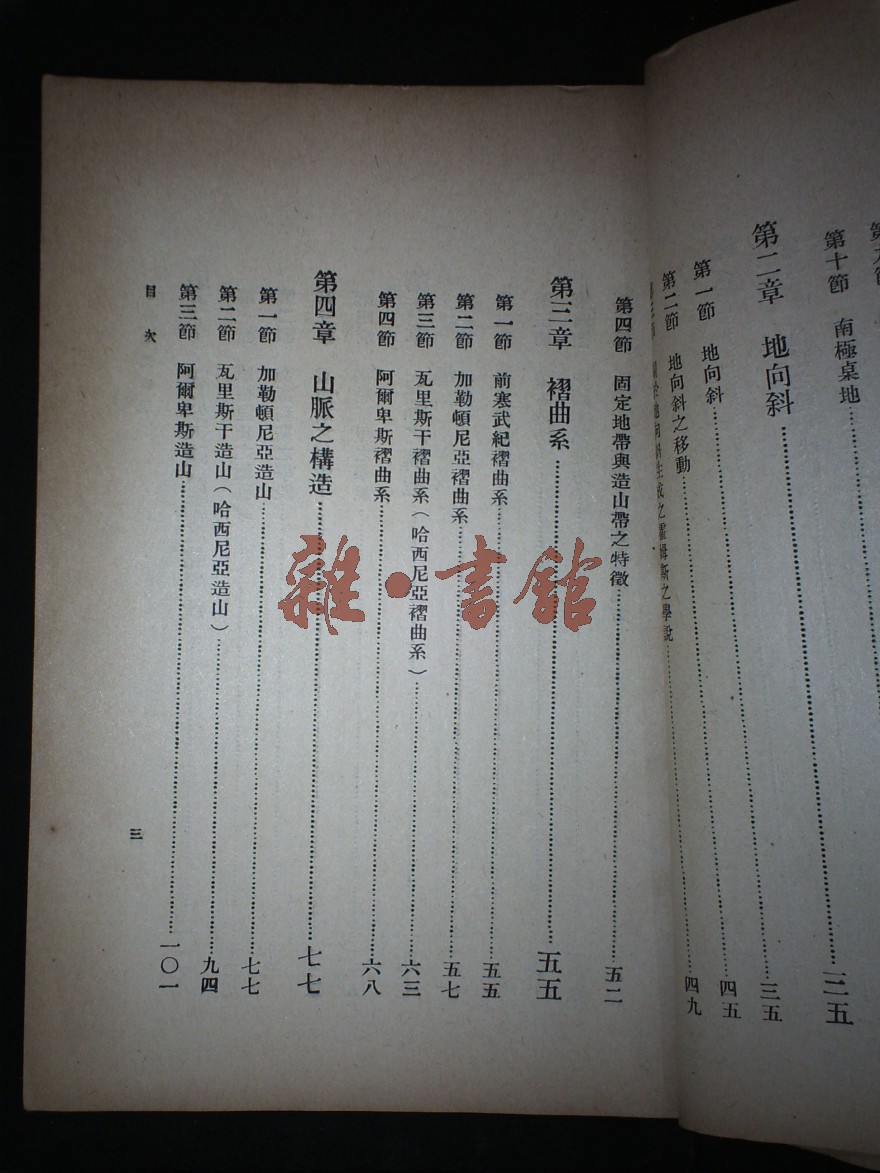 第十節 南極桌地
第二章 地向斜……三五
第一節 地向斜……三五
第二節 地向斜之移動……四五
地向斜生成之 姆斯之學說……四九
第四節 固定地帶與造山帶之特徵……五二
第三章 褶曲系……五五
第一節 前寒武紀褶曲系……五五
第二節 加勒頓尼亞褶曲系……五七
第三節 瓦里斯干褶曲系(哈西尼亞褶曲系)……六三
第四節 阿爾卑斯褶曲系……六八
第四章 山脈之構造……七七
第一節 加勒頓尼亞造山……七七
第二節 瓦里斯干造山(哈西尼亞造山)……九四
第三節 阿爾卑斯造山……一〇一
目次
三
雜·書館